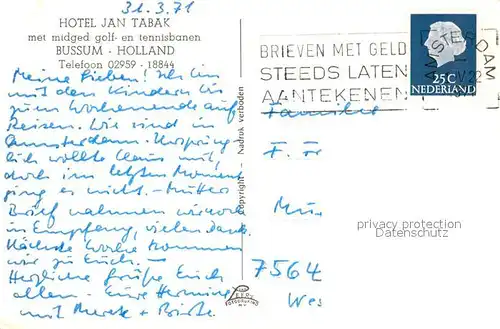 31.3.71
HOTEL JAN TABAK
met midged golf- en tennisbanen
BUSSUM - HOLLAND
Telefoon 02959 - 18844
Meine Lieben! Ich bin
mit den Kindern bis
zum Wochenende auf
Reisen. Wir sind in
Amsterdam. Ursprüng-
lich wollte Claus mit,
doch im letzten Moment
ging es nicht. - Mutters
Brief nahmen wir noch
in Empfang, vielen Dank.
Nächste Woche kommen
wir zu Euch. -
Herzliche Grüße Euch
allen. - Eure
mit
copyright - Nadruk verboden
BRIEVEN MET GELD
STEEDS LATEN
AANTEKENEN
AMSTERDAM
25 C
NEDERLAND
Familie
F. Fr
Mü
7564
Wes
privacy protection
Datenschutz